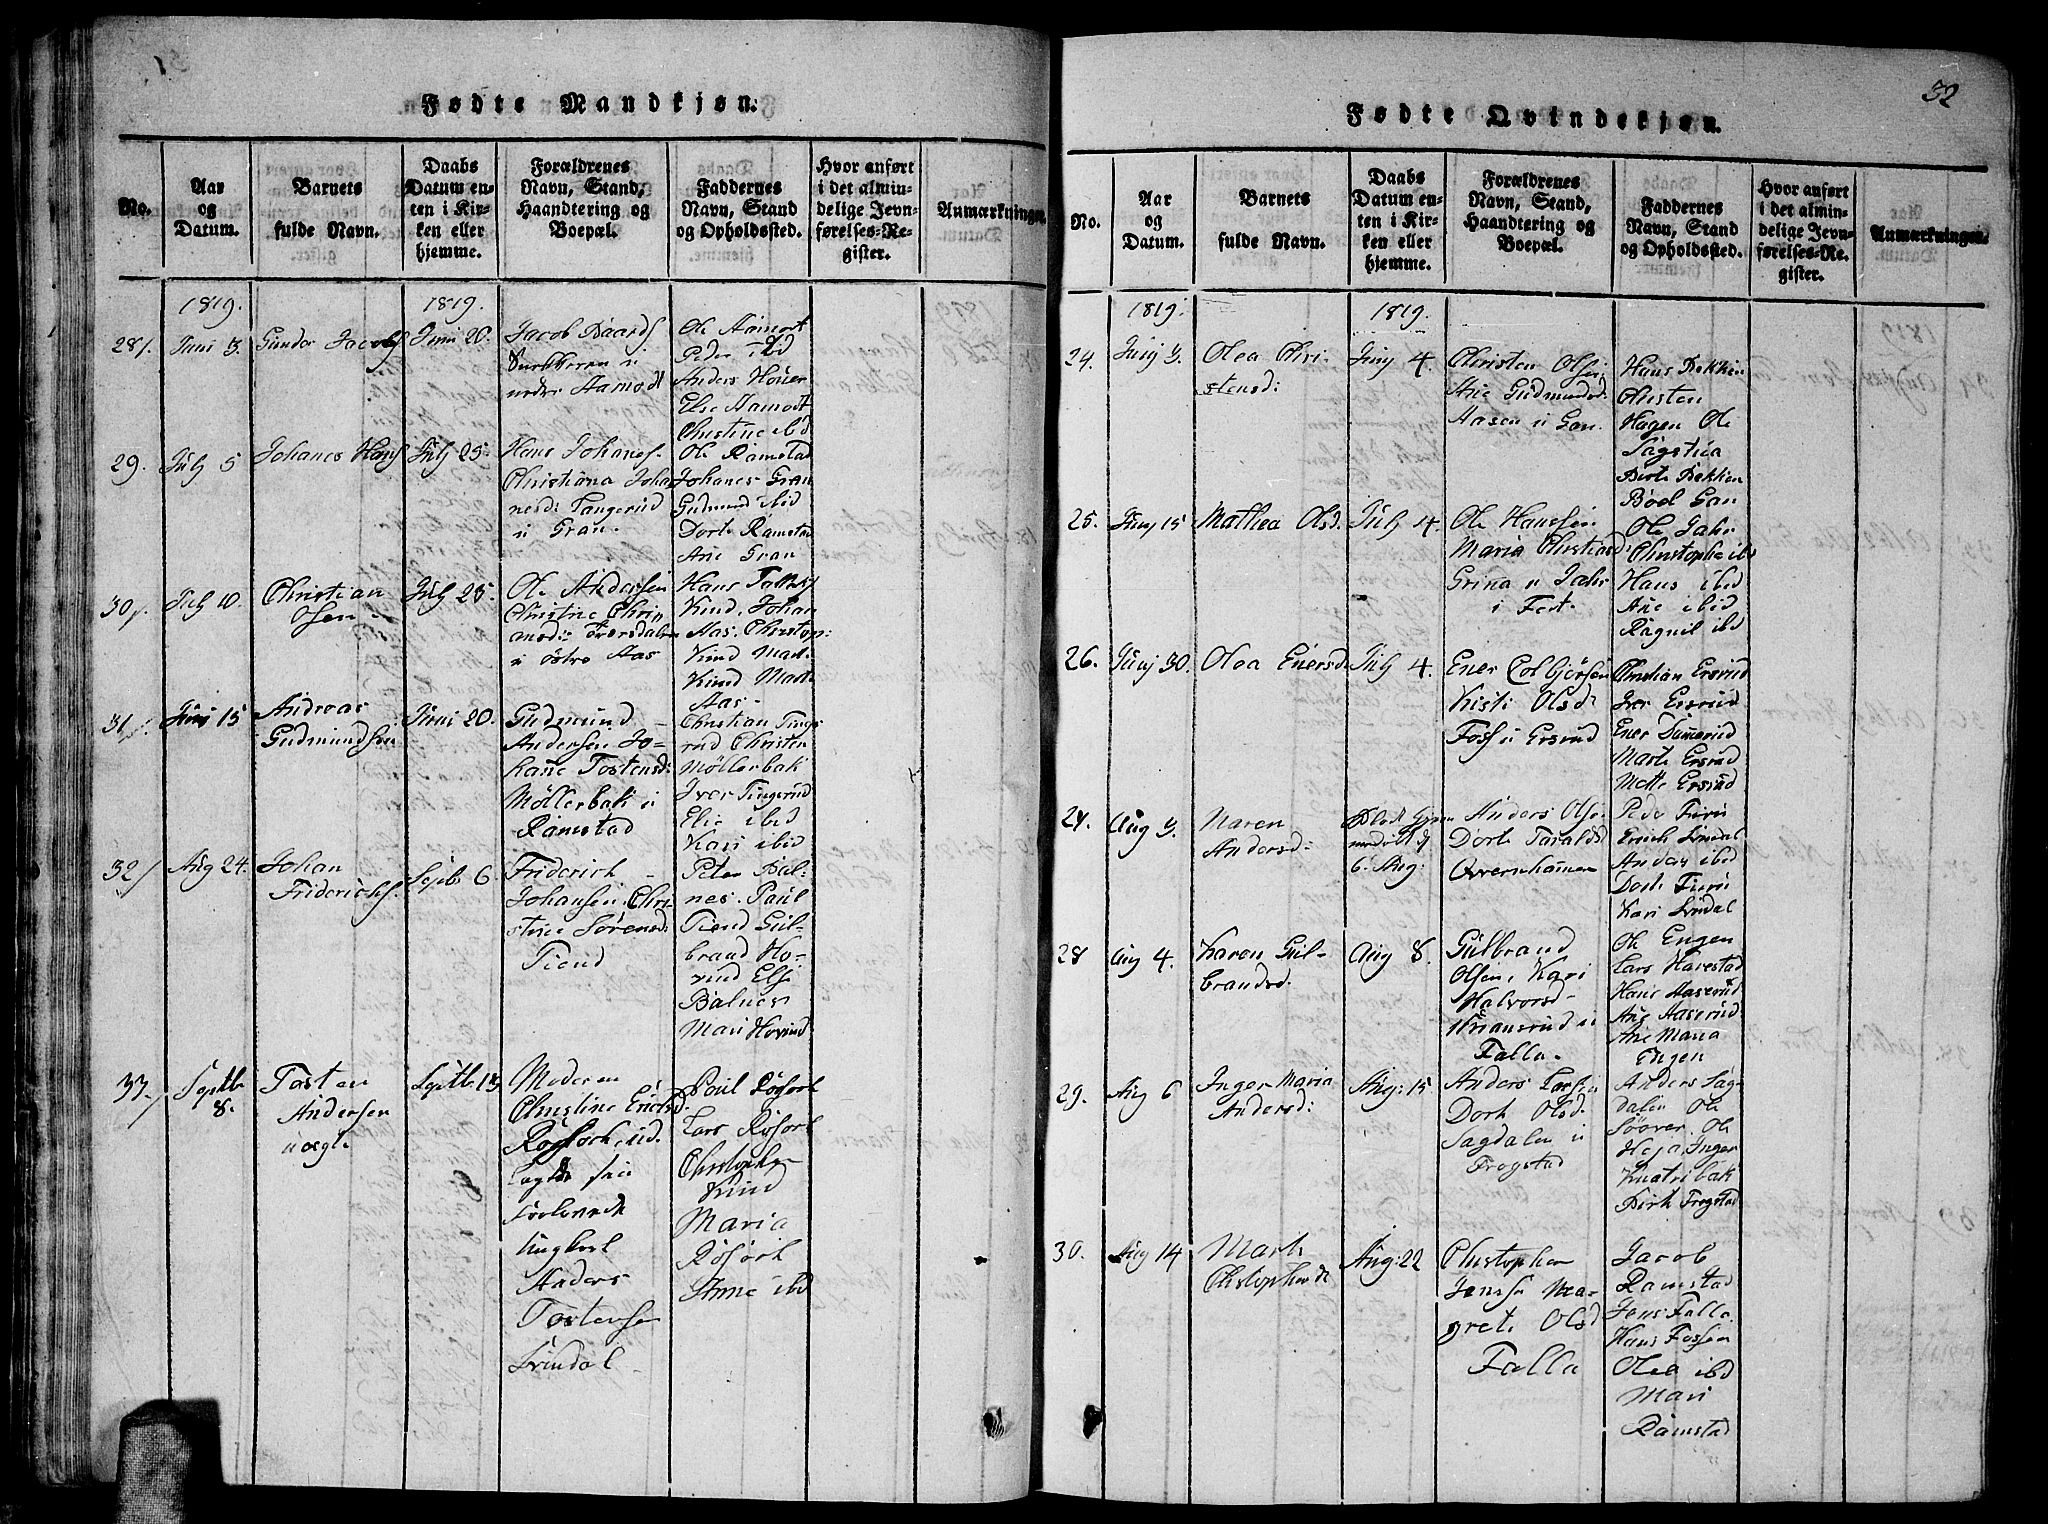 Fødte Mandkjøn.
No.
Aar
og
Datum.
Barnets
fulde Navn.
Daabs
Datum en-
ten i Kir-
ken eller
hjemme.
Forældrenes
Navn, Stand,
Haandtering og
Boepæl.
Faddernes
Navn, Stand
og Opholdssted.
Hvor anført
i det almin-
delige Jevn-
førelses-Re-
gister.
Anmærkninger.
1819.
1819.
28/.
Juni 3.
Gunder Jacobs
Juni 20.
Jacob Baards
nedre Aamodt
Ole Aamodt
Peder ibid
Anders Høuer
Else Aamodt
Christine ibid
29.
July 5
Johanes Hans
July 25.
Hans Johanes
Christiana Joha
nesd: Tangerud
u Gran.
Ole Ramstad
Johanes Gran
Gudmund ibid
Dorte Ramstad
Ane Gran
30/.
July 10.
Christian
Olsen
July 25.
Ole Andersen
Christine Chri
u østre Aas
Hans
Kind. Johan
Aas. Christop:
Kind Mart.
Kind Marte
Aas.
31/.
Juni 15
Andreas
Gudmundsen
Juni 20.
Gudmund
Andersen Jo-
hane Tostensd:
Møllerbak u
Ramstad
Christian Tings
rud Christen
Møllerbak
Iver Tingerud
Elie ibid
Kari ibid
32/
Aug 24.
Johan
Friderichs.
Septb 6.
Friderich
Johansen. Chri-
stine Sørensd:
Tiend
Peter Bal-
nes. Paul
Tiend Gul-
brand Ho-
vind Else
Balnes
Mari Hovind
33./
Septb
8.
Tosten
Andersen
uægte
Septb 13
Moderen
Christine Ericksd.
Røsjorh, ud.
lagde Fa
Ungkarl
Anders
Tostensen
Svindal
Poul Røsjorh
Lars Røsjorh
Christopher
Kind
Maria
Røsjorh
Anne ibid
32
Fødte Qvindekjøn.
No.
Aar
og
Datum.
Barnets
fulde Navn.
Daabs
Datum en-
ten i Kir-
ken eller
hjemme.
Forældrenes
Navn, Stand,
Haandtering og
Boepæl.
Faddernes
Navn, Stand
og Opholdssted.
Hvor anført
i det almin-
delige Jevn-
førelses-Re-
gister.
Anmærkninger.
1819.
1819.
24.
Juny 3.
Olea Chri-
stensd:
July 4.
Christen Olsen
Ane Gudmundsd.
Hasen u Gan.
Hans Bekken
Christen
Hagen Ole
Sagstua
Birte Bekken
Boel Gan
25.
Juny 15
Mathea Olsd.
July 4.
Ole Hanssen
Maria Christiansd:
Grina u Jahr
i Fet.
Ole Jahr
Christopher ibid
Hans ibid
Ane ibid
Ragnil ibid
26.
Juny 30.
Olea Enersd:
July 4.
Ener Colbjørsen
Kisti Olsd
Foss u Ersrud
Christian Ersrud
Iver Ersrud
Ener Dumerud
Marte Ersrud
Mette Ersrud
27.
Aug 3.
Maren
Andersd:
6. Aug:
Anders Olse.
Dorte Taraldsd
Qvernhamer
Peder
Erich Svindal
Anders ibid
Dorte
Kari Svindal
28
Aug 4.
Karen Gul-
brandsd.
Aug 8.
Gulbrand
Olsen, Kari
Halvorsd
u
Falla.
Ole Engen
Lars Harestad
Hans Aaserud
Ane Aaserud
Ane Maria
Engen
29.
Aug 6
Inger Maria
Andersd:
Aug: 15.
Anders Larsen
Dorte Olsd.
Sagdalen u
Frogstad
Anders Sag-
dalen Ole
Søover Ole
Heja, Inger
Knatribak
Birte Frogstad
30.
Aug 14
Marte
Christophersd
Aug: 22
Christopher
Jensen Ma-
grete Olsd
Falla
Jacob
Ramstad
Jens Falla.
Hans Fossen
Olea ibid
Mari
Ramstad